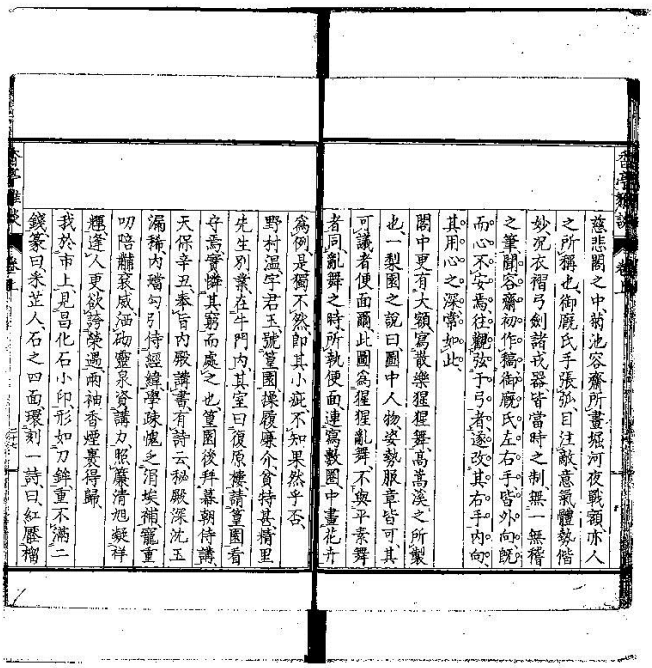 慈悲閣之中菊池容齋所畫堀河夜戰額亦人
之所稱也御厩氏手張弧目注敵意氣體勢偕
妙况衣褶弓劍諸戎器皆當時之制無一無稽
之筆聞容齋初作稿御厩氏左右手皆外向既
而心不安焉往觀弦于弓者遂改其右手內向
其用心之深常如此
閣中更有大額寫散樂猩猩舞高嵩溪之所製
也一梨園之說曰圖中人物姿勢服章皆可其
可議者便面爾此圖爲猩猩亂舞不與平素舞
者同亂舞之時所執便面連寫數圍中畫花卉
爲例是獨不然即其小疵不知果然乎否
野村温字君玉號篁園操履廉介貧特甚精里
先生別業在牛門內其室曰復原樓請篁園看
守焉實憐其窮而處之也篁園後拜幕朝侍講
天保辛丑奉旨內殿講書有詩云秘殿深沈玉
漏稀內璫勾引侍經緯學疎爐之涓埃補寵重
叨陪黼袞威洒砌靈泉資講力照簾清旭凝祥
輝逢人更欲誇榮遇兩袖香煙裹得歸
我於市上見昌化石小印形如刀鉾重不滿二
錢篆曰釆芷人石之四面環刻一詩曰紅壓榴
香亭雅談
卷上